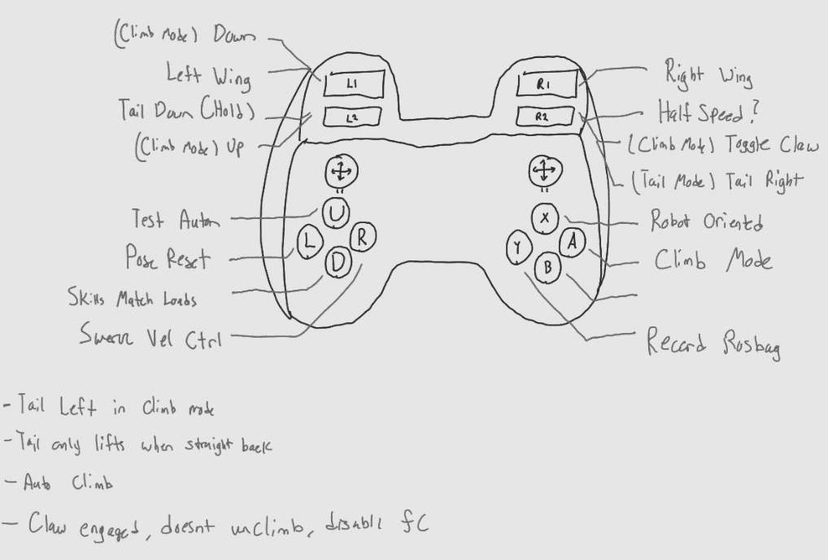 (Climb Mode) Down
Left Wing
Tail Down (Hold)
(Climb Mode) Up
L1
L2
R1
R2
Right Wing
Half Speed?
(Climb Mode) Toggle Claw
(Tail Mode) Tail Right
U
L
R
D
X
Y
A
B
Test Auton
Pose Reset
Skills Match Loads
Vel Ctrl
Robot Oriented
Climb Mode
Record Rosbag
- Tail Left in climb mode
- Tail only lifts when straight back
- Auto Climb
- Claw engaged, doesnt unclimb, disable fC